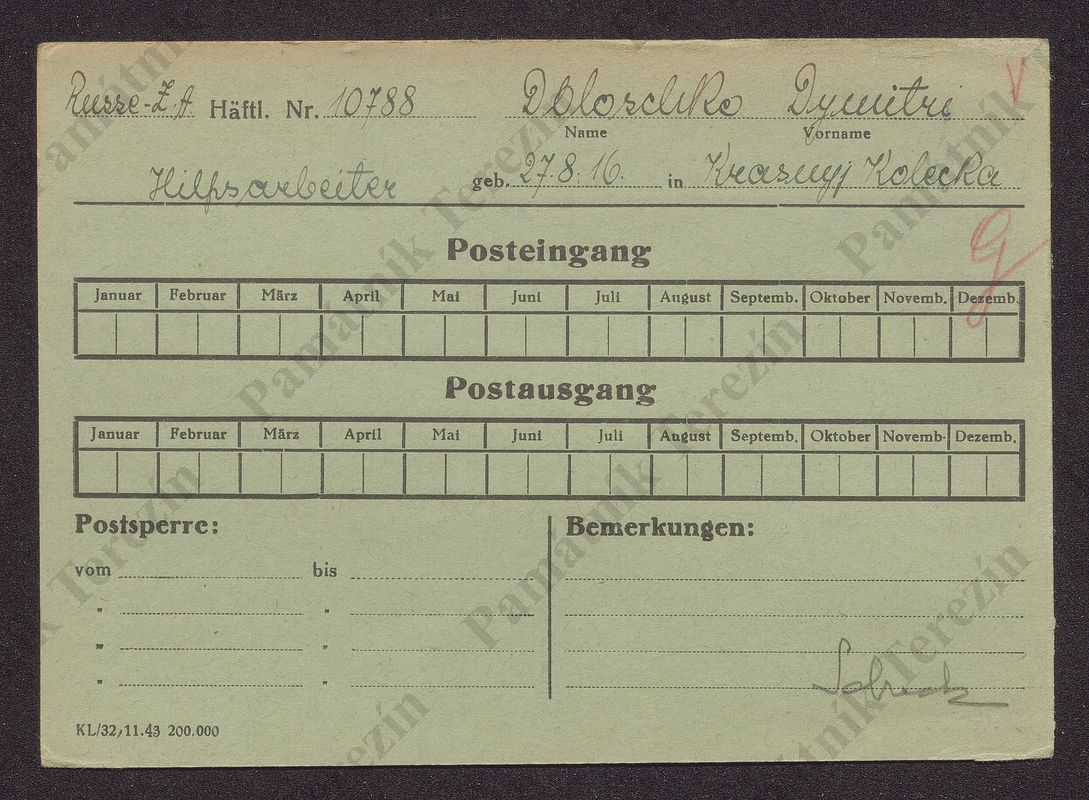 Russe-Z.A Häftl. Nr. 10788 Dbloschko Dymitri
Name Vorname
Hilfsarbeiter geb. 27.8.16. in Krasnyj Kolecka
Posteingang
Januar Februar März April Mai Juni Juli August Septemb. Oktober Novemb. Dezemb.
Postausgang
Januar Februar März April Mai Juni Juli August Septemb. Oktober Novemb. Dezemb.
Postsperre: Bemerkungen:
vom bis
" "
" "
" "
KL/32, 11.43 200.000
Památník Terezín